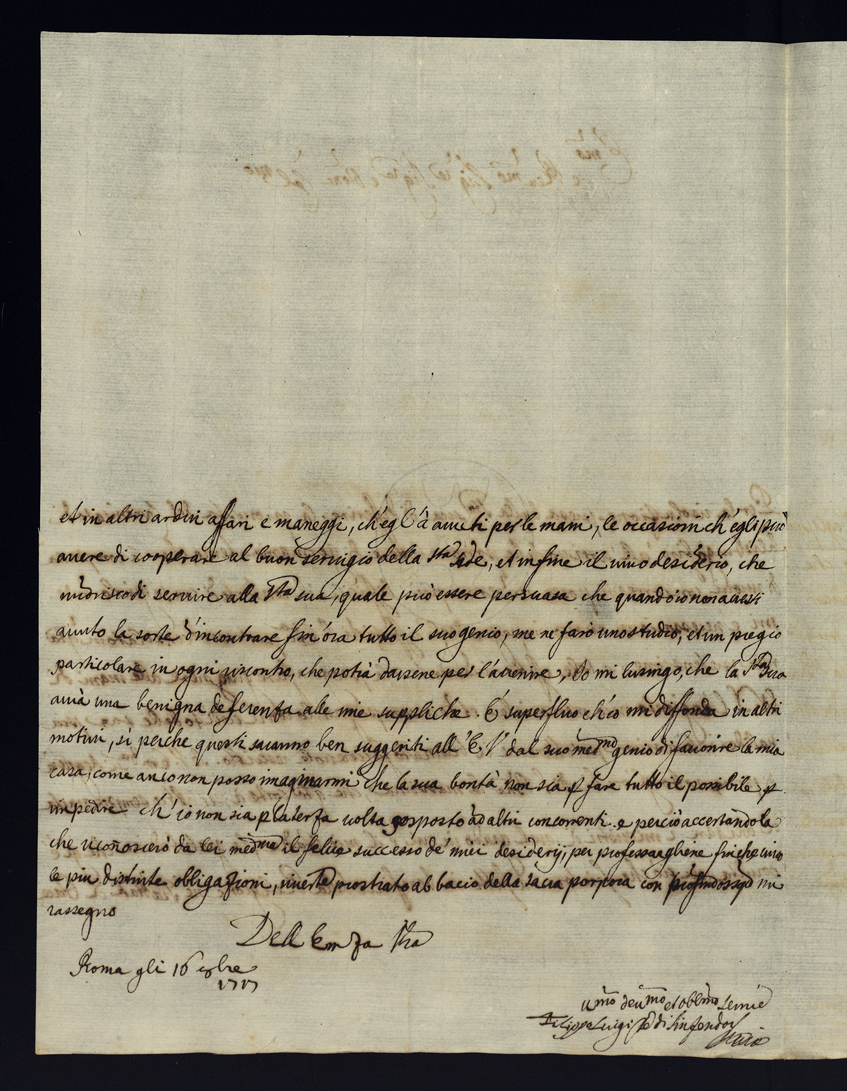 et in altri ardui affari e maneggi, ch'egl'à auuti per le mani, le occasioni ch'egli può
auere di cooperare al buon seruigio della Sta Sede, et infine il uiuo desiderio, che
nudrisco di seruire alla Stà sua, quale può essere persuasa che quando io non auessi
auuto la sorte d'incontrare sin'ora tutto il suo genio, me ne farò uno studio, et un pregio
particolare in ogni incontro, che potrà darsene per l'auuenire, Io mi lusingo, che la Stà Sua
aurà una benigna deferenza alle mie suppliche. È superfluo ch'io mi diffonda in altri
motiui, sì perche questi saranno ben suggeriti all'E. V. dal suo medmo genio di fauorire la mia
casa, come anco non posso imaginarmi che la sua bontà non sia p fare tutto il possibile p
impedire ch'io non sia p la terza uolta posposto ad altri concorrenti e perciò accertandola
che riconoscerò da lei medma il felice successo de' miei desiderij, per professarghene finche uiuo
le più distinte obligazioni, prostrato al bacio della sacra porpora con mi
rassegno
Dell Emza Vra
Roma gli 16 8bre
1717
Umo deumo et obblmo serure
Filippo Luigi di Sinzendorf